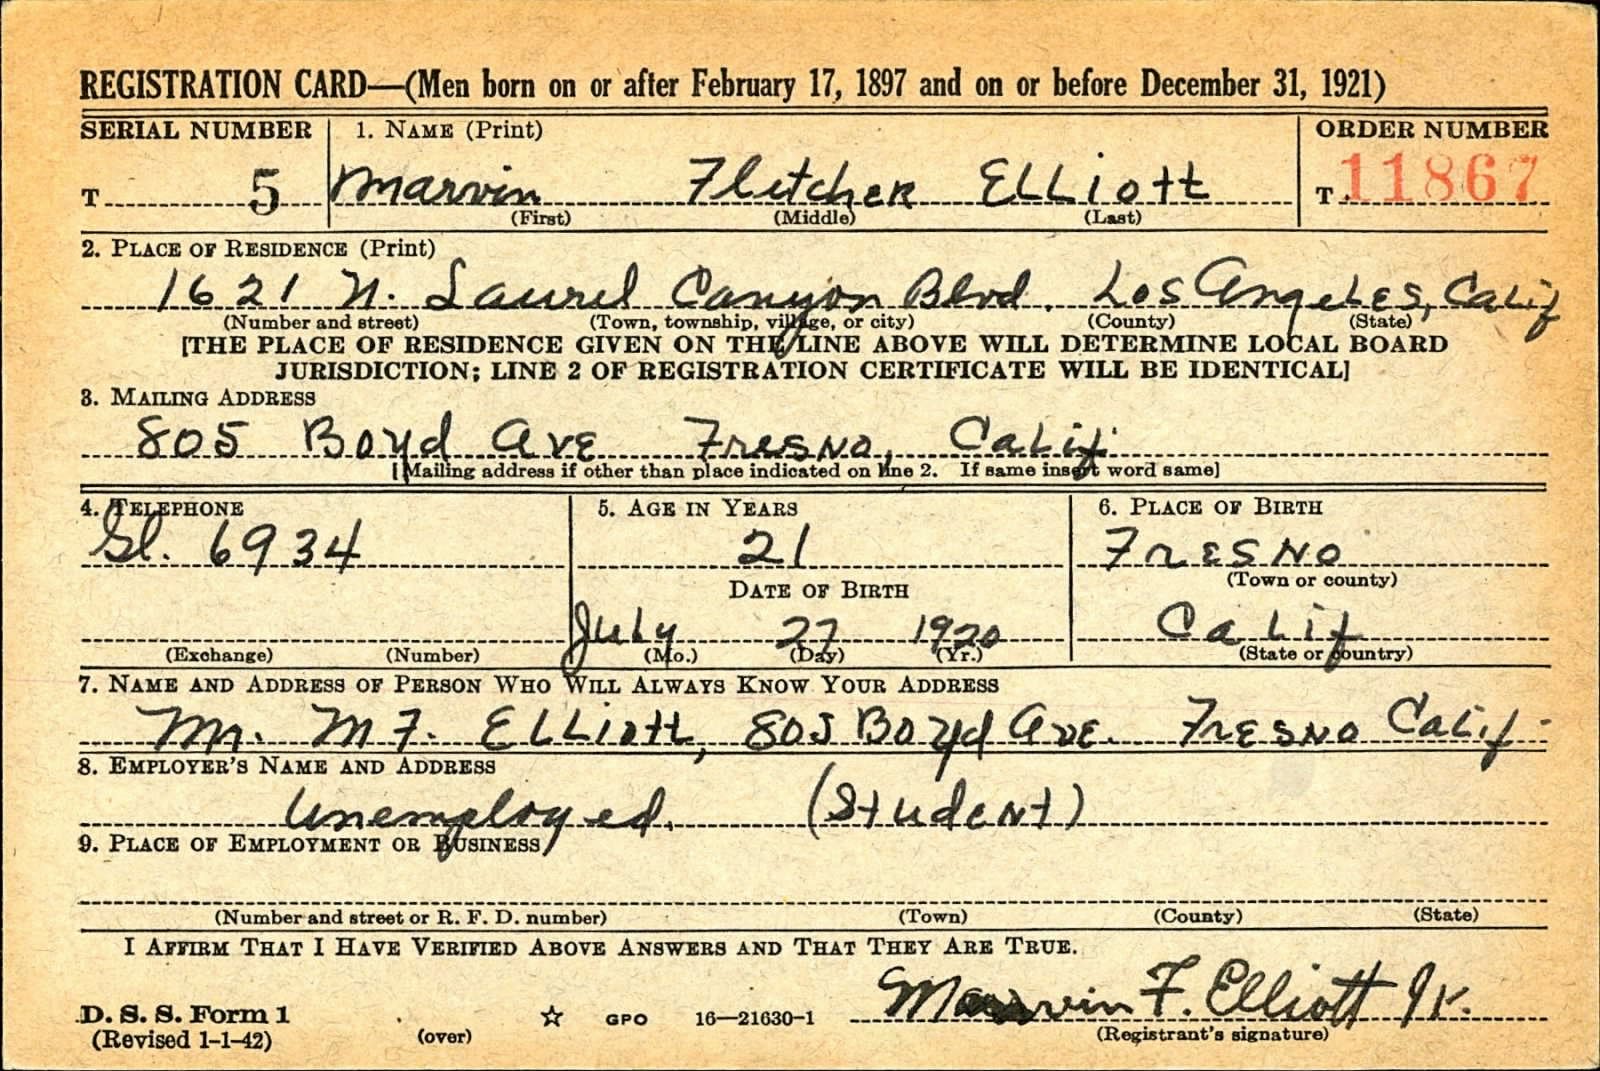 REGISTRATION CARD—(Men born on or after February 17, 1897 and on or before December 31, 1921)
SERIAL NUMBER 1. NAME (Print) ORDER NUMBER
T 5 Marvin Fletcher Elliott T 11867
(First) (Middle) (Last)
2. PLACE OF RESIDENCE (Print)
1621 N. Laurel Canyon Blvd. Los Angeles, Calif
(Number and street) (Town, township, village, or city) (County) (State)
[THE PLACE OF RESIDENCE GIVEN ON THE LINE ABOVE WILL DETERMINE LOCAL BOARD
JURISDICTION; LINE 2 OF REGISTRATION CERTIFICATE WILL BE IDENTICAL]
3. MAILING ADDRESS
805 Boyd Ave Fresno, Calif.
[Mailing address if other than place indicated on line 2. If same insert word same]
4. TELEPHONE 5. AGE IN YEARS 6. PLACE OF BIRTH
Gl. 6934 21 Fresno
DATE OF BIRTH (Town or county)
July 27 1920 Calif
(Exchange) (Number) (Mo.) (Day) (Yr.) (State or country)
7. NAME AND ADDRESS OF PERSON WHO WILL ALWAYS KNOW YOUR ADDRESS
Mr. M F. Elliott, 805 Boyd Ave. Fresno Calif.
8. EMPLOYER'S NAME AND ADDRESS
Unemployed. (Student)
9. PLACE OF EMPLOYMENT OR BUSINESS
(Number and street or R. F. D. number) (Town) (County) (State)
I AFFIRM THAT I HAVE VERIFIED ABOVE ANSWERS AND THAT THEY ARE TRUE.
Marvin F. Elliott Jr.
D. S. S. Form 1
(Revised 1-1-42) (over) ☆ GPO 16—21630-1 (Registrant's signature)